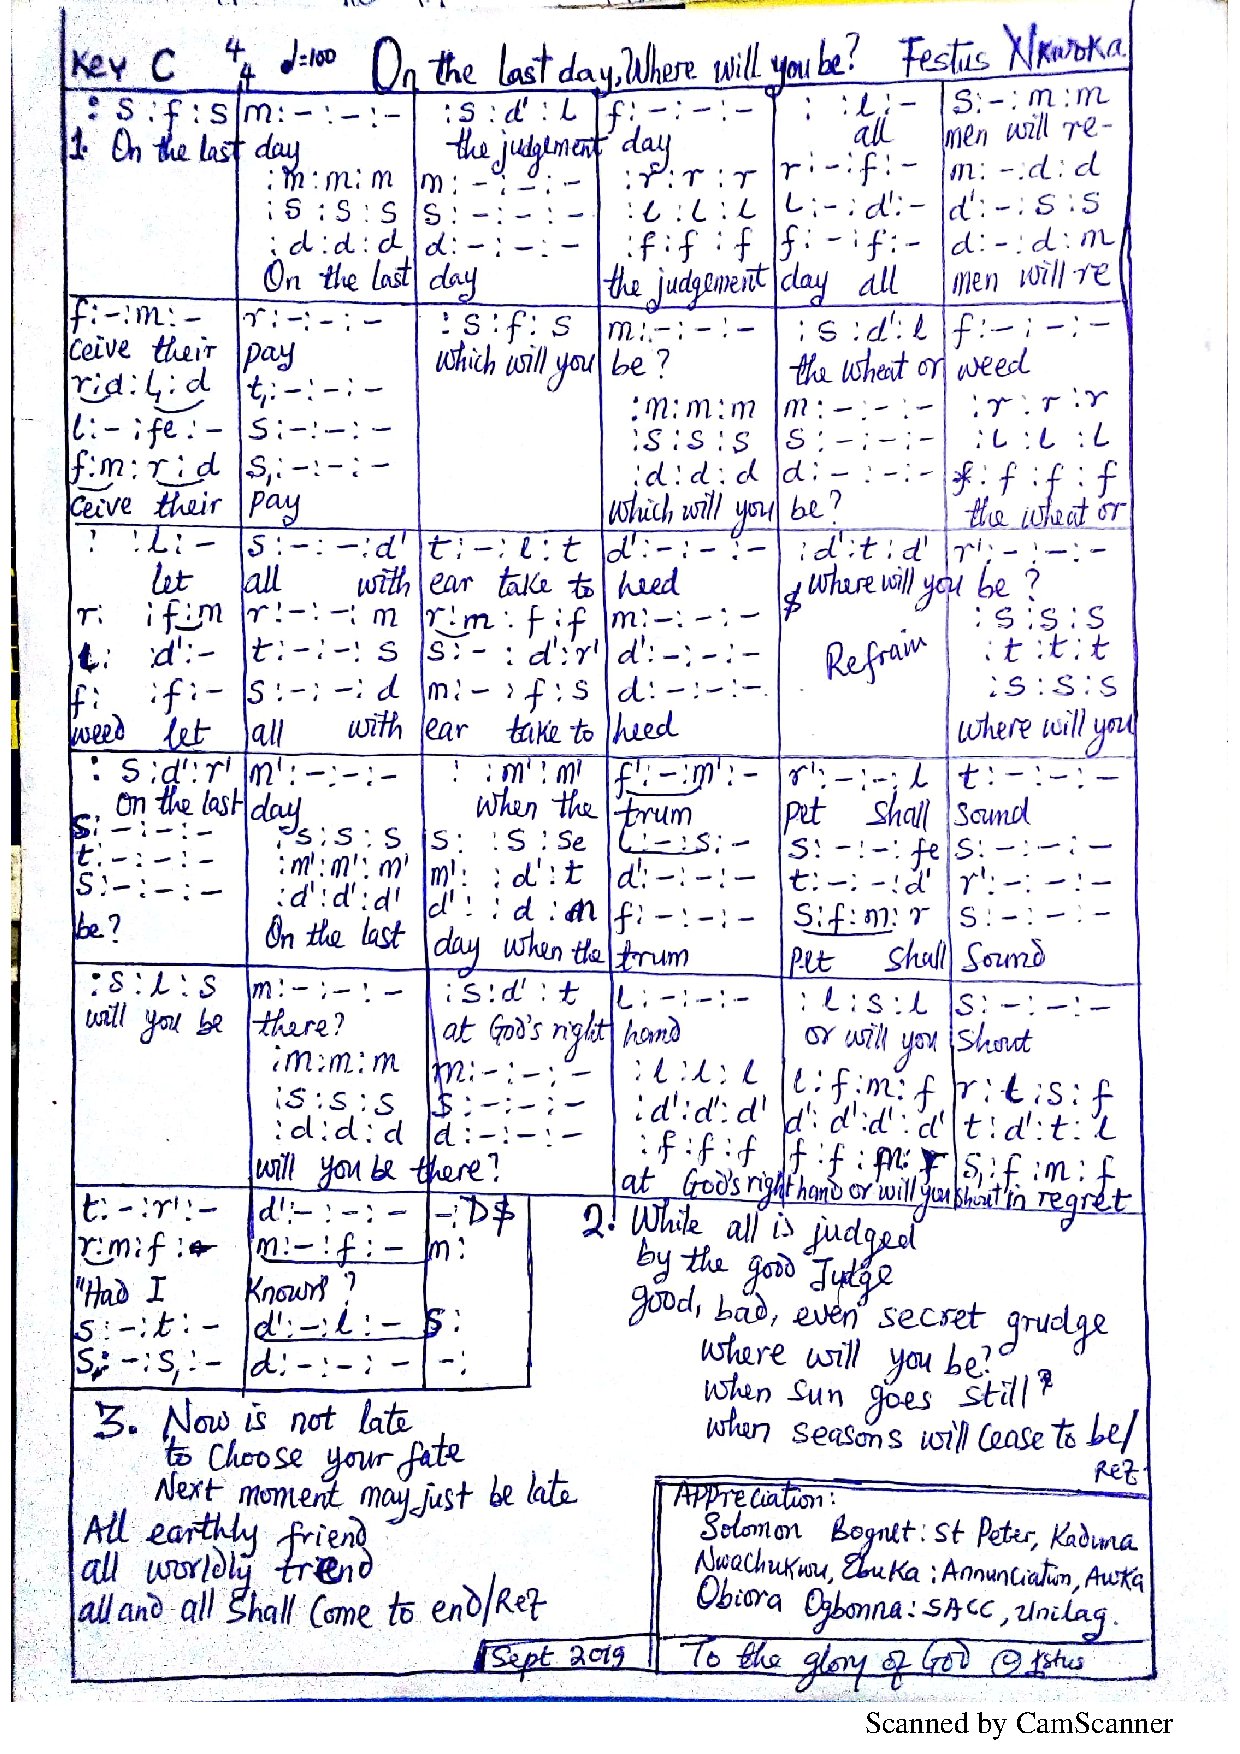 Key C 4/4 d=100 On the last day, Where will you be? Festus Nkwoka.
: s : f : s | m : - : - : - | : s : d' : l | f : - : - : - | : : l : - | s : - : m : m
1. On the last day the judgement day all men will re-
: m : m : m | m : - : - : - | : r : r : r | r : - : f : - | m : - : d : d
: s : s : s | s : - : - : - | : l : l : l | l : - : d' : - | d' : - : s : s
: d : d : d | d : - : - : - | : f : f : f | f : - : f : - | d : - : d : m
On the last day the judgement day all men will re
f : - : m : - | r : - : - : - | : s : f : s | m : - : - : - | : s : d' : l | f : - : - : -
ceive their pay which will you be? the wheat or weed
r : d : l, : d | t, : - : - : - | : m : m : m | m : - : - : - | : r : r : r
l : - : fe : - | s : - : - : - | : s : s : s | s : - : - : - | : l : l : l
f : m : r : d | s, : - : - : - | : d : d : d | d : - : - : - | : f : f : f
ceive their pay which will you be? the wheat or
: : l : - | s : - : - : d' | t : - : l : t | d' : - : - : - | : d' : t : d' | r' : - : - : -
let all with ear take to heed $ where will you be?
r : : f : m | r : - : - : m | r : m : f : f | m : - : - : - | : s : s : s
l : : d' : - | t : - : - : s | s : - : d' : r' | d' : - : - : - | Refrain | : t : t : t
f : : f : - | s : - : - : d | m : - : f : s | d : - : - : - | : s : s : s
weed let all with ear take to heed where will you
: s : d' : r' | m' : - : - : - | : : m' : m' | f' : - : m' : - | r' : - : - : l | t : - : - : -
on the last day when the trum pet shall sound
s : - : - : - | : s : s : s | s : : s : se | l : - : s : - | s : - : - : fe | s : - : - : -
t : - : - : - | : m' : m' : m' | m' : : d' : t | d' : - : - : - | t : - : - : d' | r' : - : - : -
s : - : - : - | : d' : d' : d' | d' : : d : m | f : - : - : - | s : f : m : r | s : - : - : -
be? On the last day when the trum pet shall Sound
: s : l : s | m : - : - : - | : s : d' : t | l : - : - : - | : l : s : l | s : - : - : -
will you be there? at God's right hand or will you shout
: m : m : m | m : - : - : - | : l : l : l | l : f : m : f | r : t : s : f
: s : s : s | s : - : - : - | : d' : d' : d' | d' : d' : d' : d' | t : d' : t : l
: d : d : d | d : - : - : - | : f : f : f | f : f : m : r | s, : f : m : f
will you be there? at God's right hand or will you shout in regret
t : - : r' : - | d' : - : - : - | - : D$
r : m : f : - | m : - : f : - | m :
"Had I known?
s : - : t : - | d' : - : l : - | s :
s, : - : s, : - | d : - : - : - | - :
2. While all is judged
by the good Judge
good, bad, even secret grudge
where will you be?
when sun goes still?
when seasons will cease to be/
Ref.
3. Now is not late
to choose your fate
Next moment may just be late
All earthly friend
all worldly trend
all and all shall come to end/Ref
Appreciation:
Solomon Bognet: St Peter, Kaduna
Nwachukwu, Ebuka: Annunciation, Awka
Obiora Ogbonna: SACC, Unilag.
Sept 2019
To the glory of God
Scanned by CamScanner